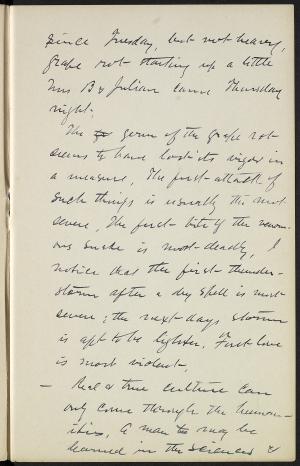 since Tuesday, but not heavy,
grape rot starting up a little
Mrs B & Julian came Thursday
night.
The germ of the grape rot
seems to have lost its vigor in
a measure. The first attack of
such things is usually the most
severe. The first bite of the venom-
ous snake is most deadly. I
notice that the first thunder-
storm after a dry spell is most
severe; the next days storm
is apt to be lighter. First love
is most violent.
— Real & true culture can
only come through the human-
ities. A man may be
learned in the sciences &